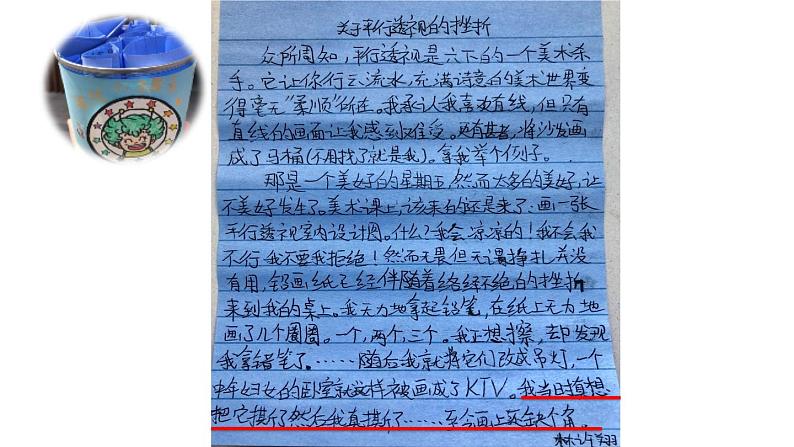 关于平行透视的挫折
众所周知，平行透视是六下的一个美术杀
手。它让你行云流水，充满诗意的美术世界变
得毫无“柔顺”所在。我承认我喜欢有线，但只有
直线的画面让我感到难受。更有甚者，将沙发画
成了马桶(不用找了就是我)。拿我举个例子。
那是一个美好的星期五，然而太多的美好，让
不美好发生了。美术课上，该来的还是来了：画一张
平行透视室内设计图。什么？我会凉凉的！我不会我
不行我不要我拒绝！然而无畏但无谓挣扎并没
有用，铅画纸已经伴随着络绎不绝的挫折
来到我的桌上。我无力地拿起铅笔，在纸上无力地
画了几个圈圈。一个，两个，三个。我正想擦，却发现
我拿错笔了。……随后我就将它们改成吊灯，一个
中年妇女的卧室就这样被画成了KTV。我当时直想
把它撕了然后我真撕了……至今画上还缺个角。
林许翔